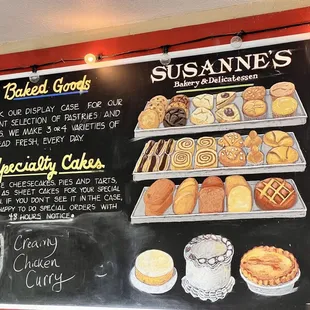 Baked Goods
K OUR DISPLAY CASE FOR OUR
NT SELECTION OF PASTRIES AND
S. WE MAKE 3 OR 4 VARIETIES OF
EAD FRESH, EVERY DAY.
Specialty Cakes
E CHEESECAKES, PIES AND TARTS,
AS SHEET CAKES FOR YOUR SPECIAL
IF YOU DON'T SEE IT IN THE CASE,
HAPPY TO DO SPECIAL ORDERS WITH
48 HOURS NOTICE.
Creamy
Chicken
Curry
SUSANNE'S
Bakery & Delicatessen